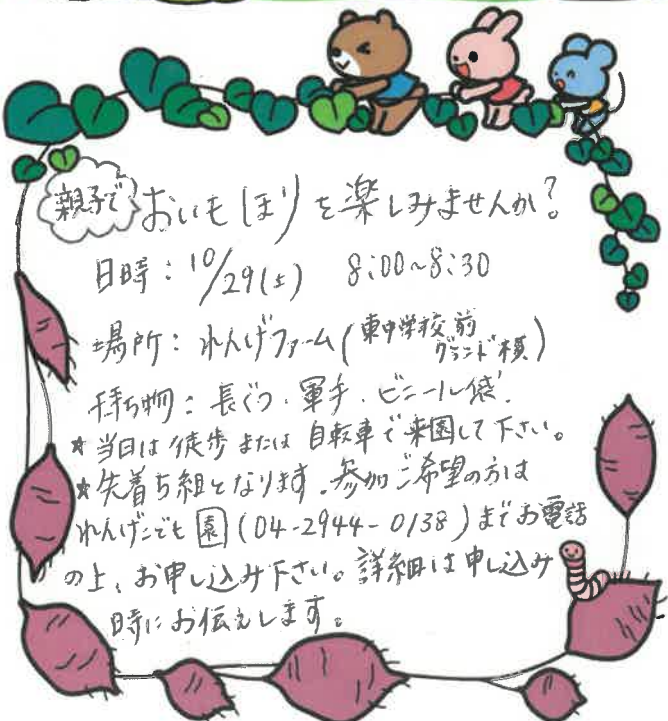 親子で おいもほりを楽しみませんか?
日時:10/29(土) 8:00~8:30
場所:れんげファーム(東中学校前 グランド横)
持ち物:長ぐつ、軍手、ビニール袋.
★当日は徒歩または自転車で来園して下さい。
★先着5組となります。参加ご希望の方は
れんげこども園(04-2944-0138)までお電話
の上、お申し込み下さい。詳細は申し込み
時にお伝えします。